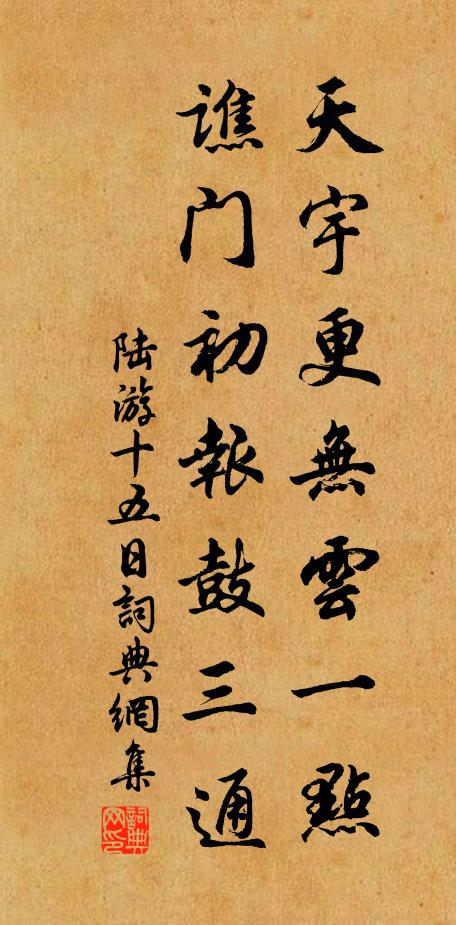 天宇更無雲一點
譙門初報鼓三通
陆游十五日詞典網集
詞典网印